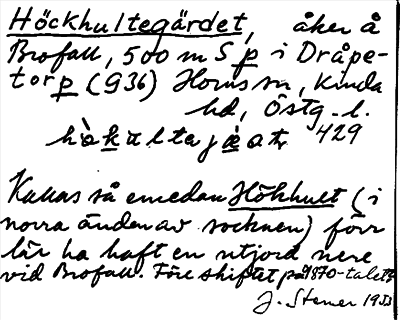 Höckhultegärdet, åker å
Brofall, 500 m S p i Dråpe-
torp (936) Horns sn, Kinda
hd, Östg. l.
429
Kallas så emedan Hökhult (i
norra änden av socknen) förr
lär ha haft en utjord nere
vid Brofall. Före skiftet på 1870-talet.
J. Stener 1933